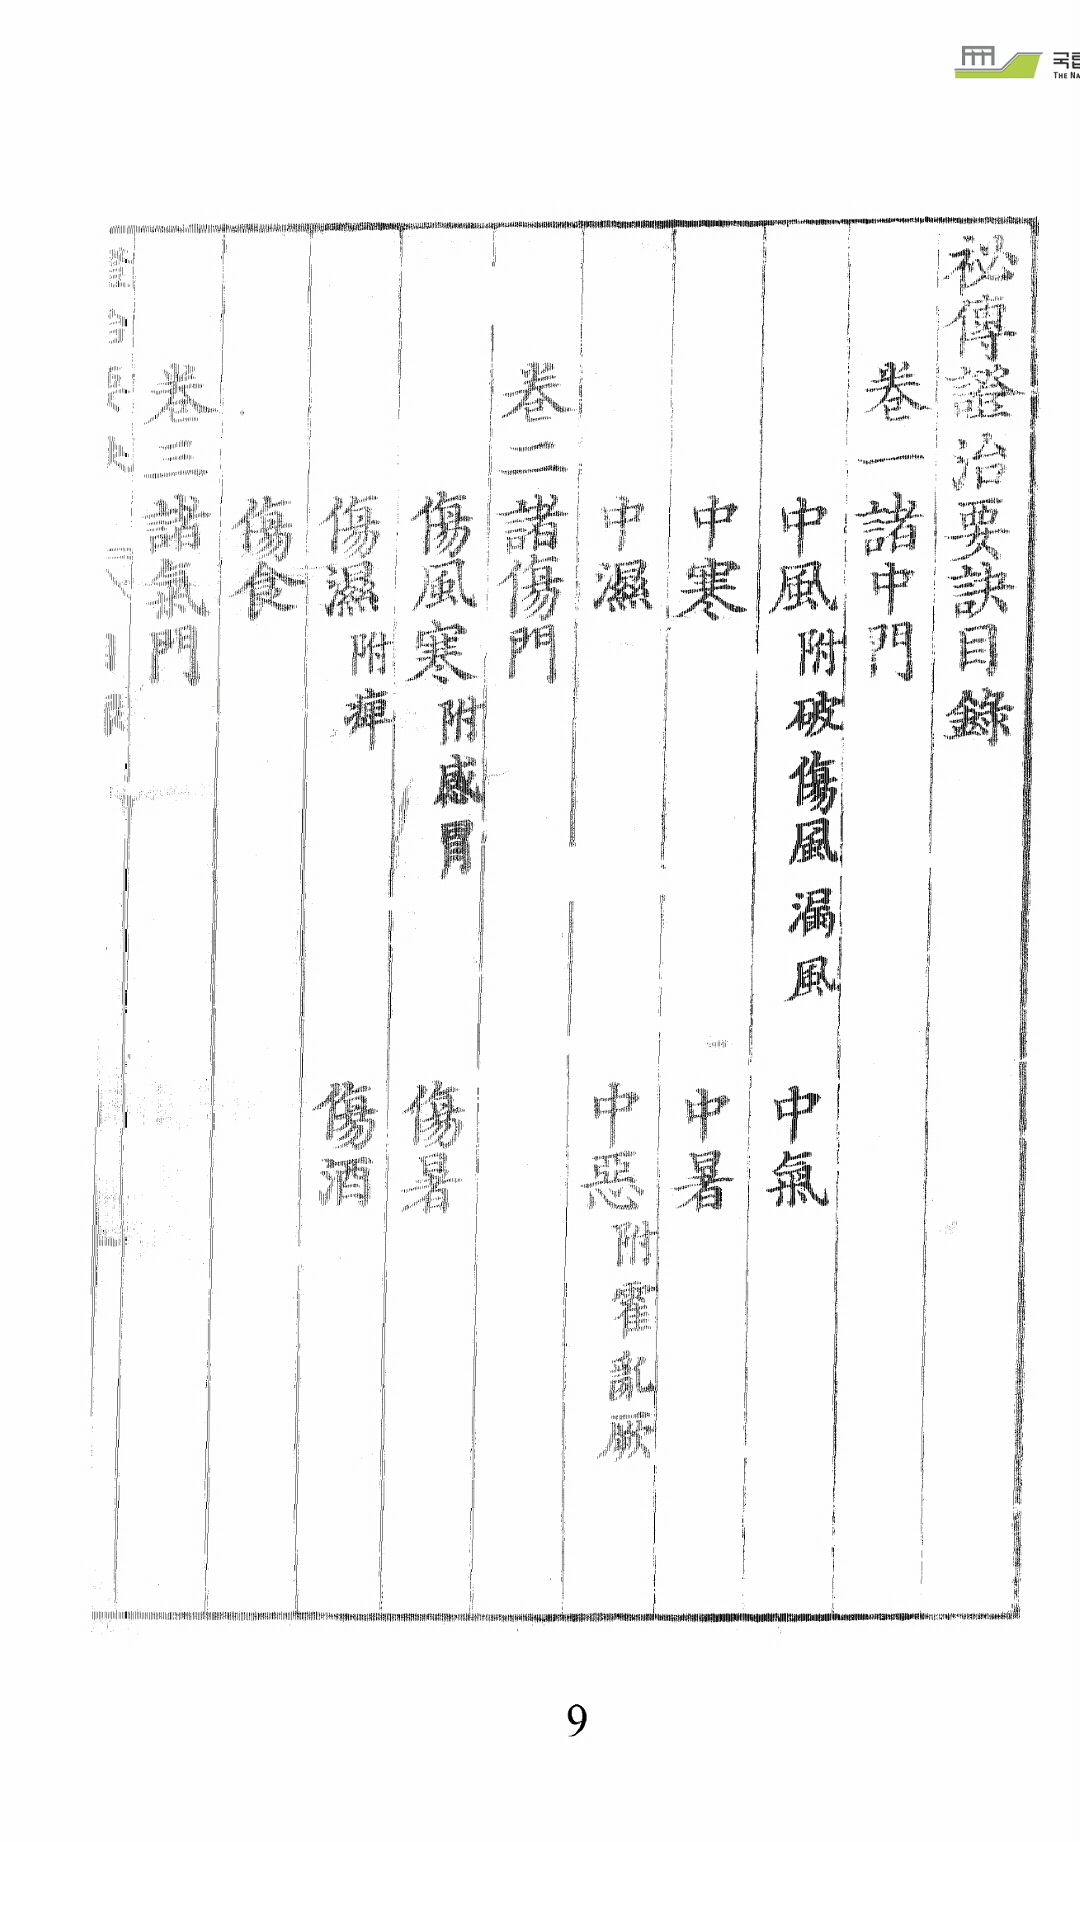 국립
THE NA
祕傳證治要訣目錄
卷一諸中門
中風附破傷風漏風 中氣
中寒 中暑
中濕 中惡附霍亂厥
卷二諸傷門
傷風寒附感冒 傷暑
傷濕附痺 傷酒
傷食
卷三諸氣門
9